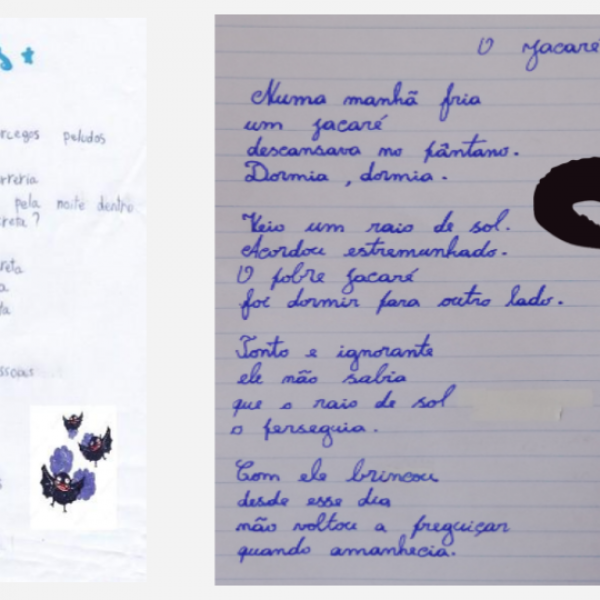 rcegos peludos
rreria
pela noite dentro
creta ?
reta
a
ta
ssoas
s
O Jacaré
Numa manhã fria
um jacaré
descansava no pântano.
Dormia, dormia.
Veio um raio de sol.
Acordou estremunhado.
O pobre jacaré
foi dormir para outro lado.
Tonto e ignorante
ele não sabia
que o raio de sol
o perseguia.
Com ele brincou
desde esse dia
não voltou a preguiçar
quando amanhecia.